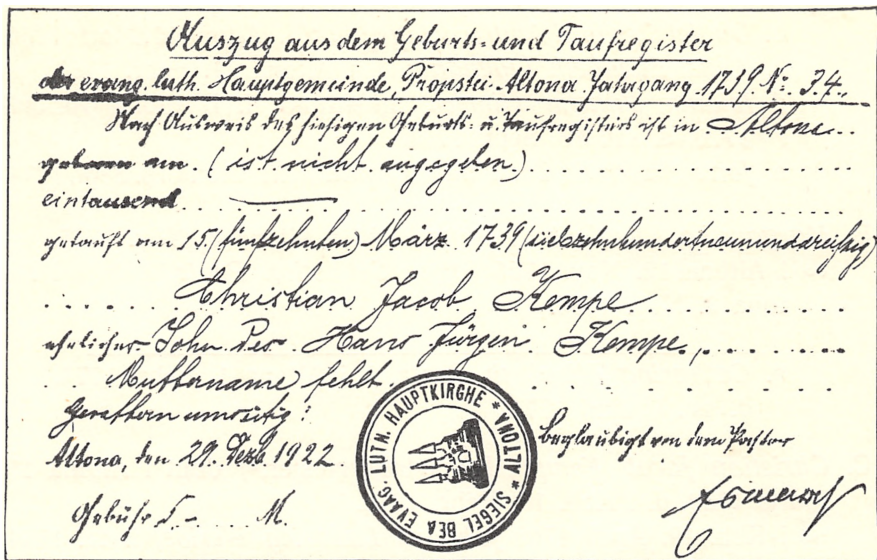 Auszug aus dem Geburts- und Taufregister
der evang. luth. Hauptgemeinde, Propstei Altona Jahrgang 1739 Nr. 34.
Nach Ausweis des hiesigen Geburts- u. Taufregisters ist in Altona
geboren am (ist nicht angegeben)
eintausend
getauft am 15. (fünfzehnten) März 1739 (siebzehnhundertneununddreißig)
Christian Jacob Kempe
ehelicher Sohn des Hans Jürgen Kempe,
Muttername fehlt.
Altona, den 29. Dezb. 1922.
beglaubigt von dem Pastor
Gebühr 5.- M.
SIEGEL DEA EVAAG. LUTN. HAUPTKIRGHE * ALTONA *